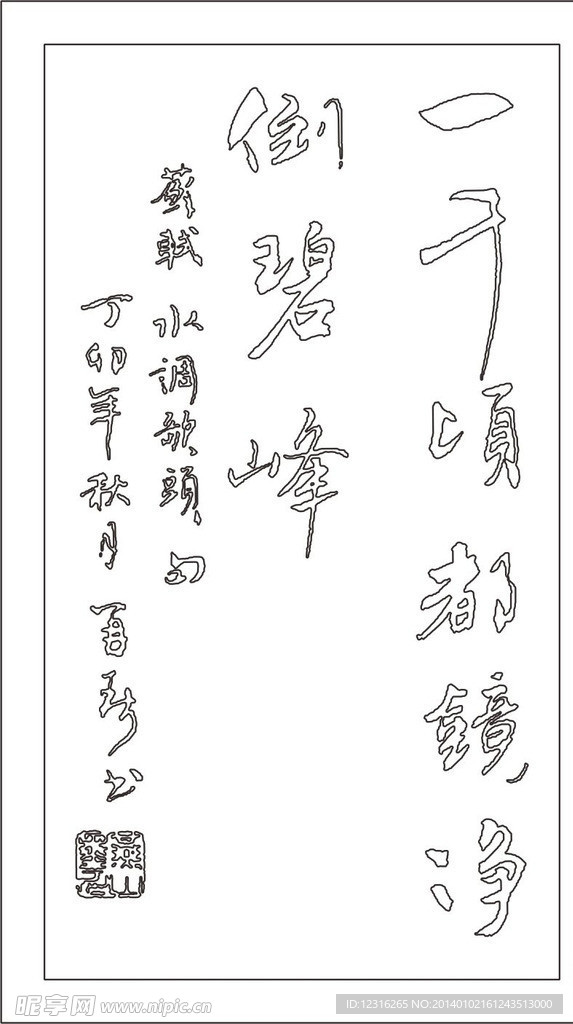 一千頃都鏡净
倒碧峰
蘇軾 水調歌頭句
丁卯年秋月 百 书
昵享网 www.nipic.cn
ID:12316265 NO:20140102161243513000